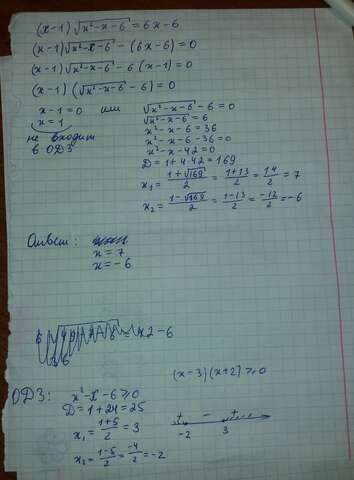 (x-1)√x²-x-6 = 6x-6
(x-1)√x²-x-6 - (6x-6)=0
(x-1)√x²-x-6 - 6(x-1)=0
(x-1)(√x²-x-6 - 6)=0
x-1=0 или √x²-x-6 - 6=0
x=1 √x²-x-6 = 6
не входит x²-x-6=36
в ОДЗ x²-x-6-36=0
x²-x-42=0
D=1+4·42=169
x₁= 1+√169/2 = 1+13/2 = 14/2 = 7
x₂= 1-√169/2 = 1-13/2 = -12/2 = -6
Ответ:
x=7
x=-6
-6
(x-3)(x+2)≥0
ОДЗ: x²-x-6≥0
D=1+24=25
x₁= 1+5/2 = 3
+ - +
-2 3
x₂= 1-5/2 = -4/2 = -2